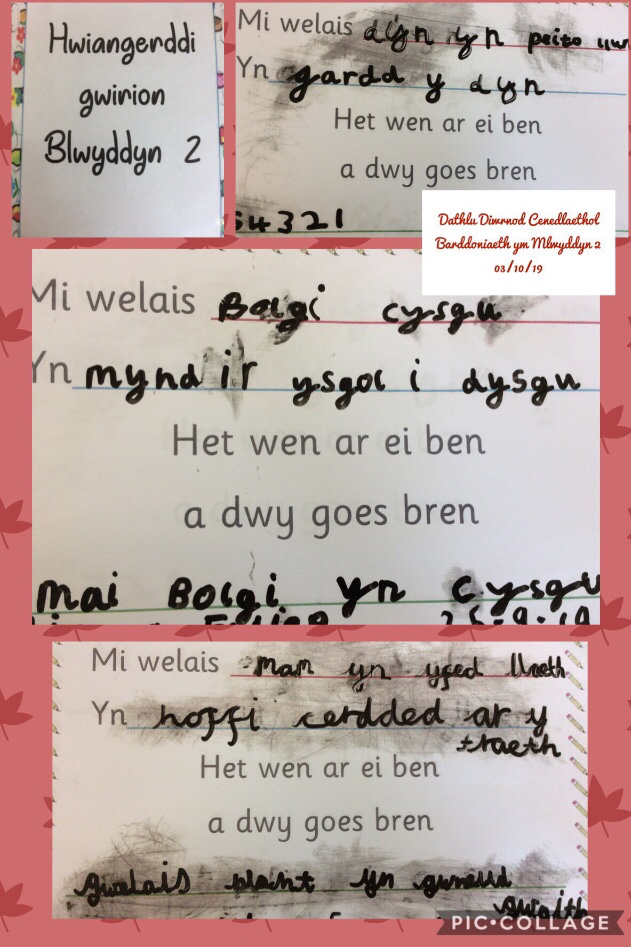 Hwiangerddi
gwirion
Blwyddyn 2
Mi welais dyn yn peito
Yn gardd y dyn
Het wen ar ei ben
a dwy goes bren
54321
Dathlu Diwrnod Cenedlaethol
Barddoniaeth ym Mlwyddyn 2
03/10/19
Mi welais Bolgi cysgu
Yn mynd ir ysgol i dysgu
Het wen ar ei ben
a dwy goes bren
mai Bolgi yn cysgu
25-9-19
Mi welais mam yn yfed llaeth
Yn hoffi cerdded ar y
traeth
Het wen ar ei ben
a dwy goes bren
gwelais plant yn gwneud
gwaith
PIC•COLLAGE